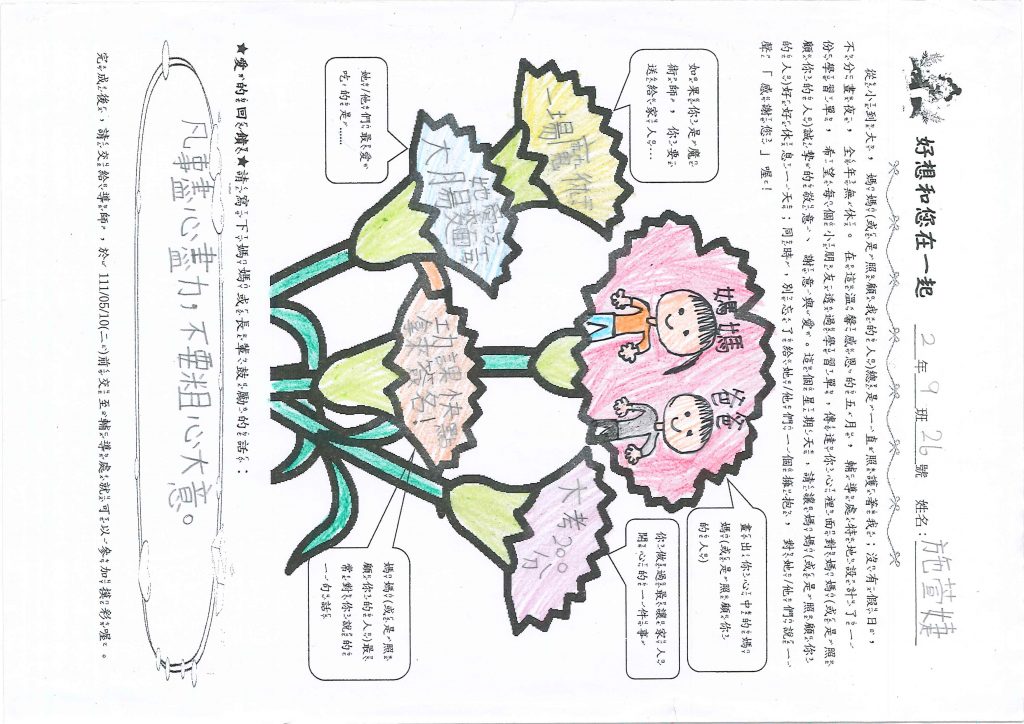 好想和您在一起 2年9班26號 姓名：施萱婕
從小到大，媽媽(或是照顧我的人)總是一直照護著我；沒有假日，
不分晝夜，全年無休。在這溫馨感恩的五月，輔導處特地設計了一
份學習單，希望每個小朋友透過學習單，傳達你心裡面對媽媽(或是照
顧你的人)誠摯的敬意、謝意與愛。這個星期天，請讓媽媽(或是照顧你
的人)好好休息一天；同時，別忘了給她/他們一個擁抱，對她/他們說一
聲「感謝您」喔！
如果你是魔
術師，你要
送給家人…
一場
畫出你心中的媽
媽(或是照顧你
的人)
媽媽
爸爸
你做過最讓家人
開心的一件事
大考200
分
她/他們最愛
吃的是……
媽媽(或是照
顧你的人)最
常對你說的
一句話
功課快點
★愛的回饋★請寫下媽媽或長輩鼓勵的話：
凡事盡心盡力，不要粗心大意。
完成後，請交給導師，於111/05/10(二)前交至輔導處就可以參加摸彩喔。